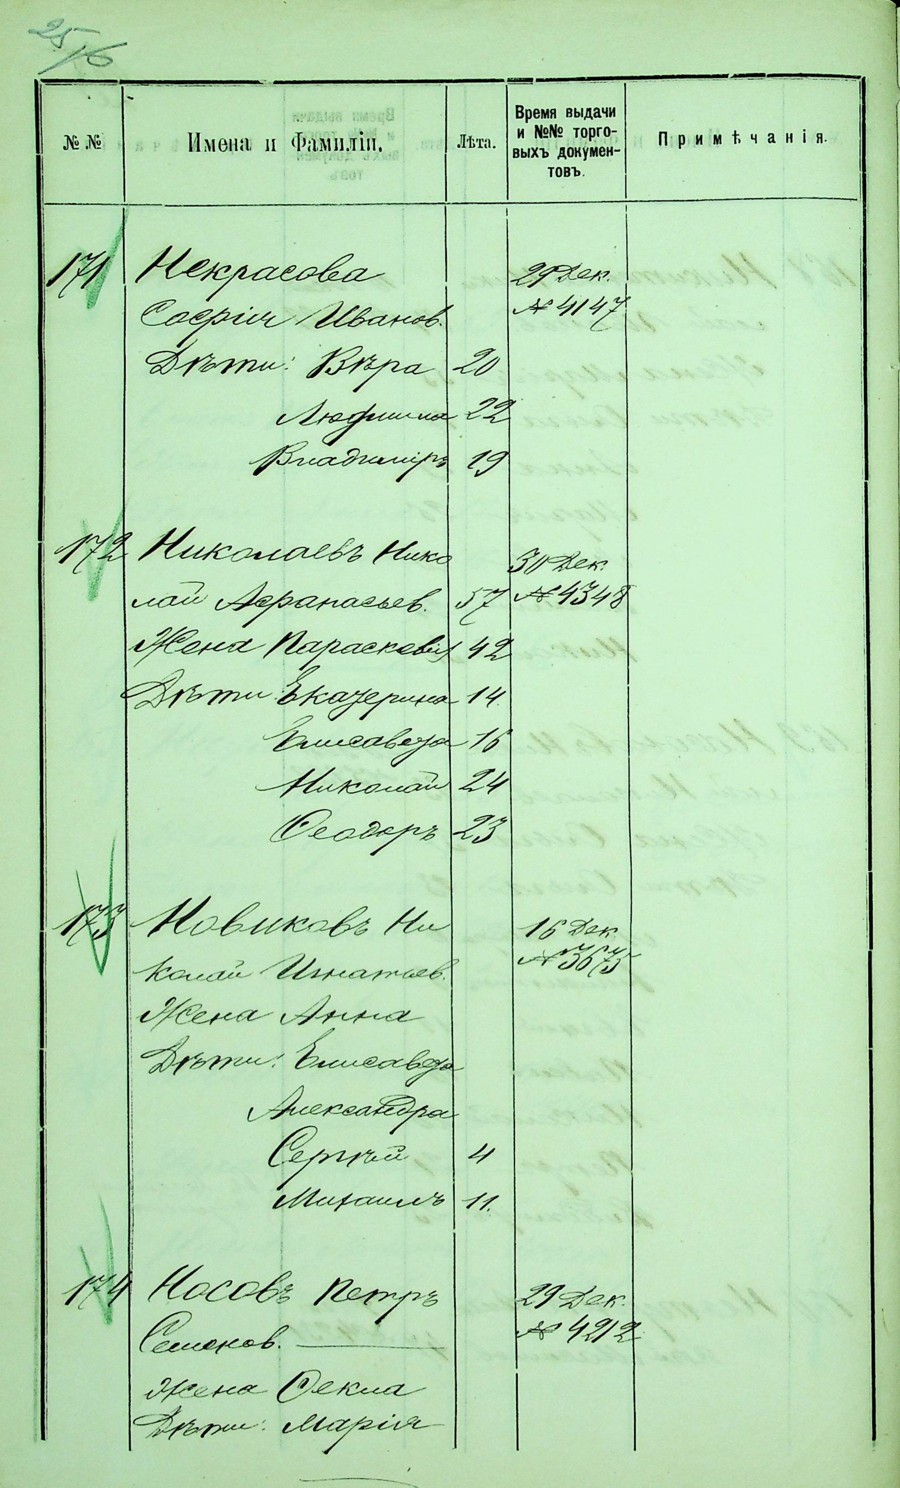 25/6
№ №
Имена и Фамиліи.
Лѣта.
Время выдачи
и №№ торго-
выхъ докумен-
товъ.
Примѣчанія.
171 Некрасова 29 Дек.
Софрія Иванов. № 4147
Дѣти: Вѣра 20
Людмила 22
Владимиръ 19
172 Николаевъ Нико 30 Дек.
лай Афанасьев. 57 № 4348
Жена Параскевія 42
Дѣти: Екатерина 14
Елисавета 16
Николай 24
Ѳеодоръ 23
173 Новиковъ Ни 16 Дек
колай Игнатьев. № 3675
Жена Анна
Дѣти: Елисавета
Александра
Сергѣй 4
Михаилъ 11.
174 Носовъ Петръ 29 Дек.
Семенов. № 4212
Жена Ѳекла
Дѣти: Марія